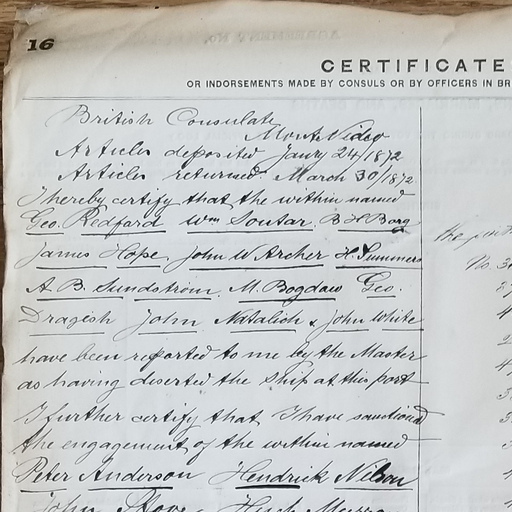 16
CERTIFICATE
OR INDORSEMENTS MADE BY CONSULS OR BY OFFICERS IN BR
British Consulate
Monte Video
Articles deposited Jany 24/1872
Articles returned March 30/1872
I hereby certify that the within named
Geo. Redford Wm Soutar. B H Borg
James Hope, John W Archer H. Summers
A. B. Sundström. M. Bogdaw Geo.
Dragish John Natalich & John White
have been reported to me by the Master
as having deserted the Ship at this port
I further certify that I have sanctioned
the engagement of the within named
Peter Anderson Hendrick Nilson
John Hugh
the
No. 3